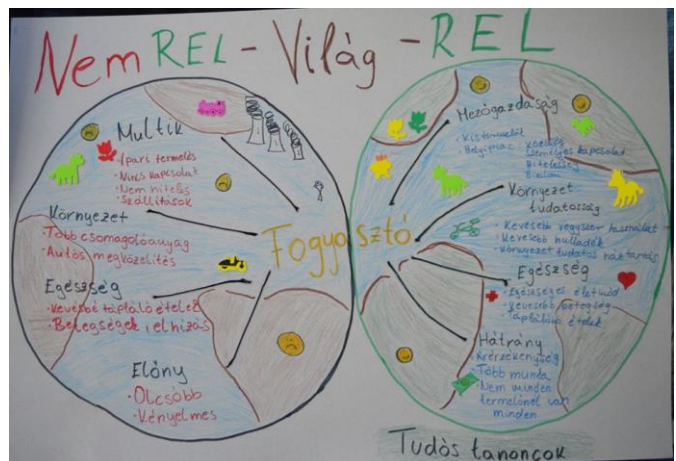 Nem REL - Világ - REL
Multik
· Ipari termelés
· Nincs kapcsolat
· Nem hiteles
· Szállítások
Környezet
· Több csomagolóanyag
· Autós megközelítés
Egészség
· Kevésbé tápláló ételek
· Betegségek, elhízás
Előny
· Olcsóbb
· Kényelmes
Fogyasztó
Mezőgazdaság
· Kistermelői
· Helyi piac
Személyes kapcsolat
Hitelesség
Bizalom
Környezet
tudatosság
· Kevesebb vegyszer használat
· Kevesebb hulladék
· Környezet tudatos háztartás
Egészség
· Egészséges életmód
· Kevesebb betegség
· Tápláló ételek
Hátrány
· Több munka
· Nem minden
termelőnél van
minden
Tudós tanoncok